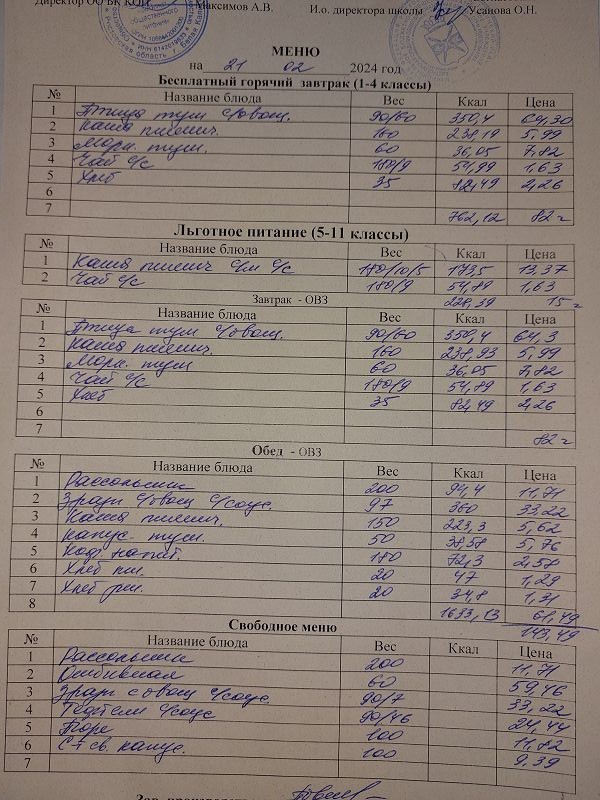 Директор ООО БК КОП Максимов А.В. И.о. директора школы Усанова О.Н.
МЕНЮ
на 21 02 2024 год
Бесплатный горячий завтрак (1-4 классы)
№ Название блюда Вес Ккал Цена
1 Птица туш с/овощ. 90/60 350,4 64,30
2 Каша пшенич. 160 238,19 5,99
3 Морк. туш. 60 36,05 7,82
4 Чай с/с 180/9 54,99 1,63
5 Хлеб 35 82,49 2,26
6
7 762,12 82
Льготное питание (5-11 классы)
№ Название блюда Вес Ккал Цена
1 Каша пшенич с/м с/с 180/10/5 173,5 13,37
2 Чай с/с 180/9 54,89 1,63
228,39 15
Завтрак - ОВЗ
№ Название блюда Вес Ккал Цена
1 Птица туш с/овощ. 90/60 350,4 64,3
2 Каша пшенич. 160 238,93 5,99
3 Морк. туш 60 36,05 7,82
4 Чай с/с 180/9 54,89 1,63
5 Хлеб 35 82,49 2,26
6
7 82
Обед - ОВЗ
№ Название блюда Вес Ккал Цена
1 Рассольник 200 94,4 11,71
2 Зразы с/овощ с/соус. 97 360 33,22
3 Каша пшенич. 150 223,3 5,62
4 Капус. туш. 50 38,58 5,76
5 Коф. напит. 180 72,3 2,58
6 Хлеб пш. 20 47 1,29
7 Хлеб рж. 20 34,8 1,31
8 1633,13 61,49
143,49
Свободное меню
№ Название блюда Вес Ккал Цена
1 Рассольник 200 11,71
2 Отбивная 60 59,46
3 Зразы с овощ с/соус 90/7 33,22
4 Тефтели с/соус 90/46 24,44
5 Пюре 100 11,82
6 С-т св. капус. 100 9,39
7